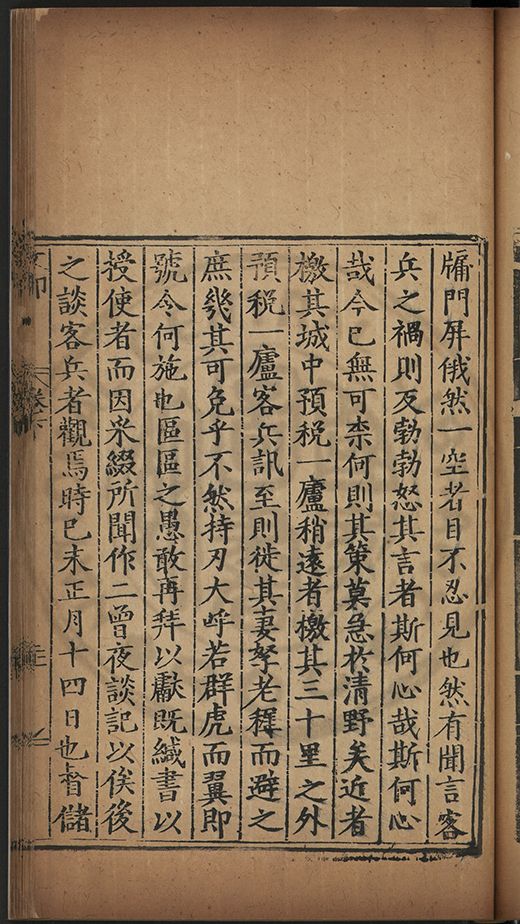 牖門屏俄然一空者目不忍見也然有聞言客
兵之禍則反勃勃怒其言者斯何心哉斯何心
哉今已無可柰何則其策莫急於清野矣近者
檄其城中預税一廬稍遠者檄其三十里之外
預税一廬客兵訊至則徙其妻孥老穉而避之
庶幾其可免乎不然持刃大呼若群虎而翼即
號令何施也區區之愚敢再拜以獻既緘書以
授使者而因采綴所聞作二曾夜談記以俟後
之談客兵者觀焉時已未正月十四日也督儲